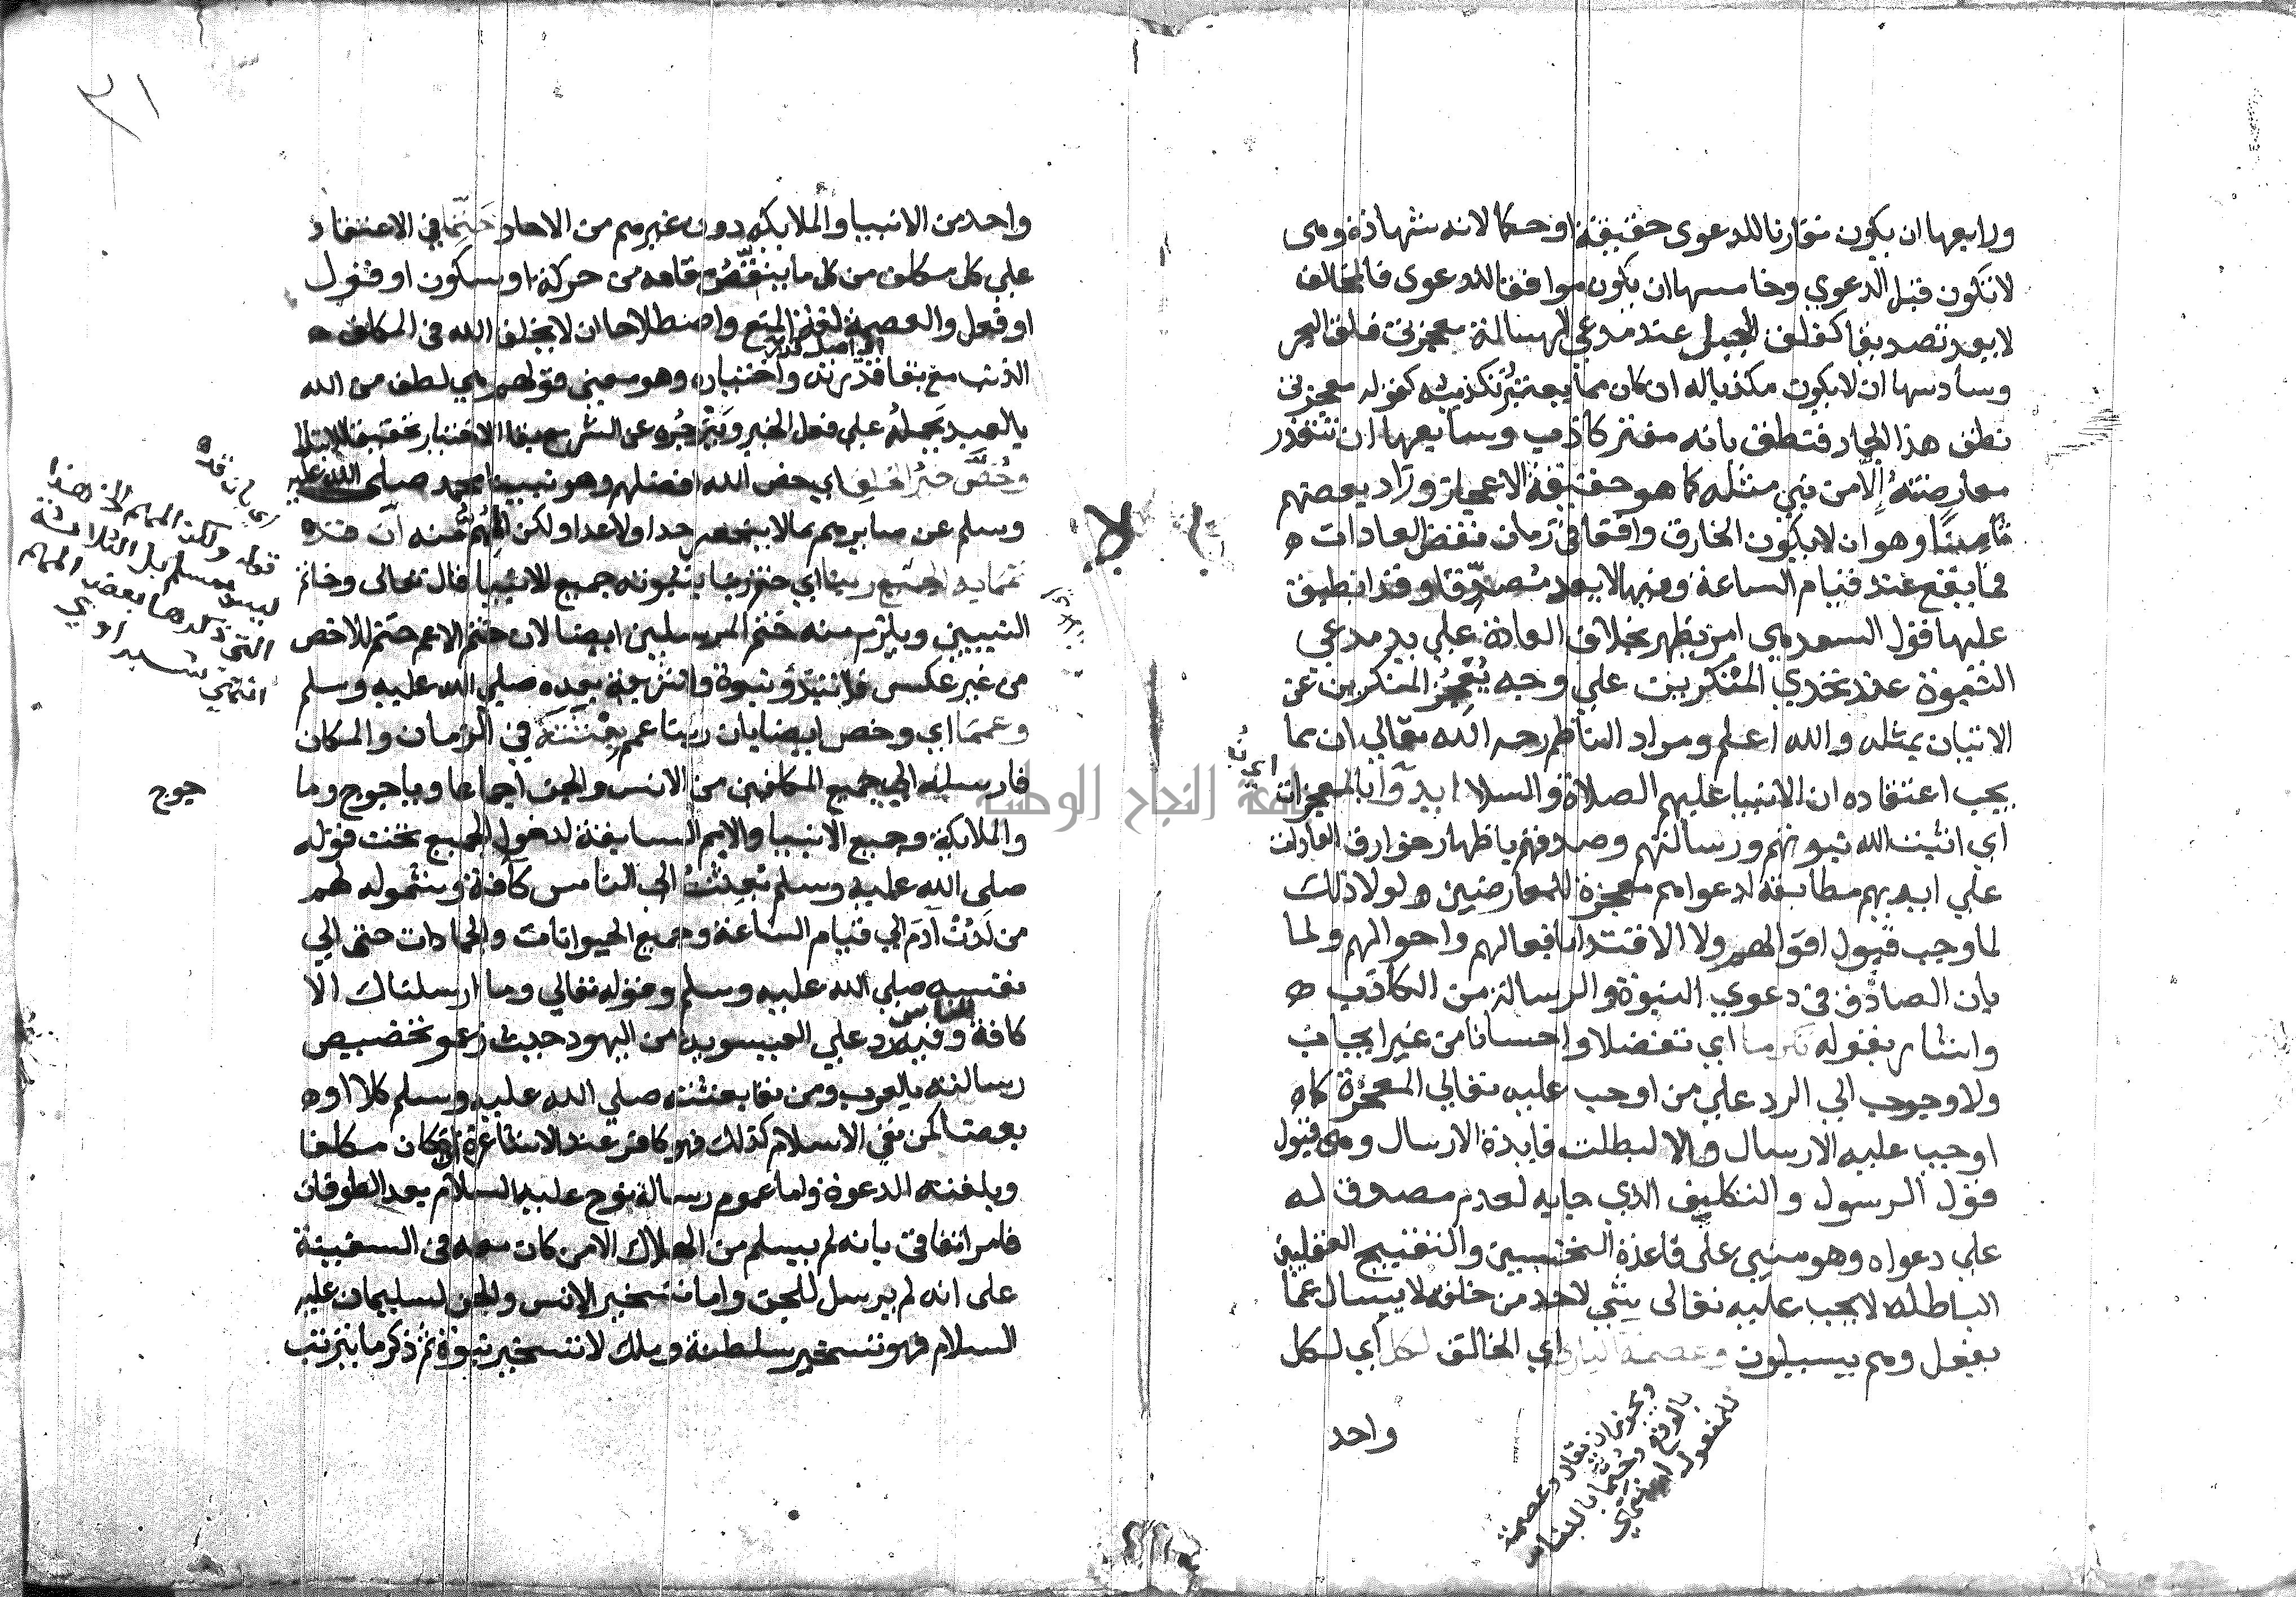 ورابعها ان يكون مقارنا للدعوى حقيقة او حكما لانه شهادة وهي
لا تكون قبل الدعوي وخامسها ان يكون موافقا للدعوى فالمخالف
لا يعد تصديقا كفلق الجبل عند مدعي الرسالة معجزتي فلق البحر
وسادسها ان لا يكون مكذبا له ان كان مما يعتبر تكذيبه كقوله معجزتي
نطق هذا الجماد فنطق بانه مفتر كاذب وسابعها ان تتعذر
معارضته إلا من نبي مثله كما هو حقيقة الاعجاز وزاد بعضهم
ثامنا وهو ان لا يكون الخارق واقعا في زمان نقض العادات ه
فما يقع عند قيام الساعة وفيها لا يعد مصدقا وقد انطبق
عليها قول السعد هي امر يظهر بخلاف العادة علي يد مدعي
النبوة عند تحدي المنكرين علي وجه يُعجِز المنكرين عن
الاتيان بمثله والله اعلم ومراد الناظم رحمه الله تعالي ان مما
يجب اعتقاده ان الانبيا عليهم الصلاة والسلا ايدوا بالمعجزات
اي اثبت الله نبوتهم ورسالتهم وصدقهم باظهار خوارق العادات
علي ايديهم مطابقة لدعواهم معجزة للمعارضين ه لولا ذلك
لما وجب قبول اقوالهم ولا الاقتدا بافعالهم واحوالهم ولما
بان الصادق في دعوي النبوة والرسالة من الكاذب ه
واشار بقوله تكرما اي تفضلا واحسانا من غير ايجاب
ولا وجوب الي الرد علي من اوجب عليه تعالي المعجزة كما ه
اوجب عليه الارسال والا لبطلت فايدة الارسال وهي قبول
قول الرسول والتكليف الذي جا به لعدم مصدق له
علي دعواه وهو مبني على قاعدة التحسين والتقبيح العقليين
الباطله لا يجب عليه تعالى شي لاحد من خلقه لا يسال عما
يفعل وهم يسيلون وعصمة الباري اي الخالق لكل اي لكل
واحد
ويجوز ان يقال وعصمة
بالرفع وحتما بالبنا
للمفعول
٣١
واحد من الانبيا والملايكه دون غيرهم من الاحاد حتما في الاعتقاد
علي كل مكلف من كل ما ينقّص مقامه من حركة او سكون او قول
او فعل والعصمة لغة المنع واصطلاحا ان لا يخلق الله في المكلف ه
الذنب مع بقا قدرته واختياره وهو معنى قولهم هي لطف من الله
بالعبد يحمله علي فعل الخير ويزجره عن الشر مع بقا الاختيار تحقيقا للابتلا
وخُصَّ خير الخلق اي خص الله افضلهم وهو نبينا محمد صلى الله عليه
وسلم عن سايرهم بما لا ينحصر حدا ولا عدا ولكن المهم منه ان قده
تمما به الجميع ربنا اي ختم ربنا بنبوته جميع الانبيا قال تعالى وخاتم
النبيين ويلزم منه ختم المرسلين ايضا لان ختم الاعم ختم للاخص
من غير عكس فلا تبتدؤ نبوة ولا شريعة بعده صلى الله عليه وسلم
وعمما اي وخص ايضا بان ربنا عمم بعثته في الزمان والمكان
فارسله الي جميع المكلفين من الانس والجن اجماعا وياجوج وما
جوج
والملايكة وجميع الانبيا والامم السابقة لدخول الجميع تحت قوله
صلى الله عليه وسلم بُعِثتُ الى الناس كآفة وبشموله لهم
من لَدُنْ آدَم الي قيام الساعة وجميع الحيوانات والجمادات حتى الي
نفسه صلي الله عليه وسلم وقوله تعالي وما ارسلناك الا
كافة للناس وفيه رد علي العيسويه من اليهود حيث زعمو تخصيص
رسالته بالعرب ومن نفا بعثته صلي الله عليه وسلم كلا او ه
بعضا كمن نفي الاسلام كذلك فهو كافر عند الاشاعرة ان كان مكلفا
وبلغته الدعوة واما عموم رسالة نوح عليه السلام بعد الطوفان
فامر اتفاقي بانه لم يسلم من الهلاك الا من كان معه في السفينة
على انه لم يرسل للجن واما تسخير الانس والجن لسليمان عليه
السلام فهو تسخير سلطنة وملك لا تسخير نبوة ثم ذكر ما يترتب
اي بان قده
قوله ولكن المهم الخ هذا
ليس بمسلم بل الثلاثة
التي ذكرها بعض المهم
انتهى شبراوي